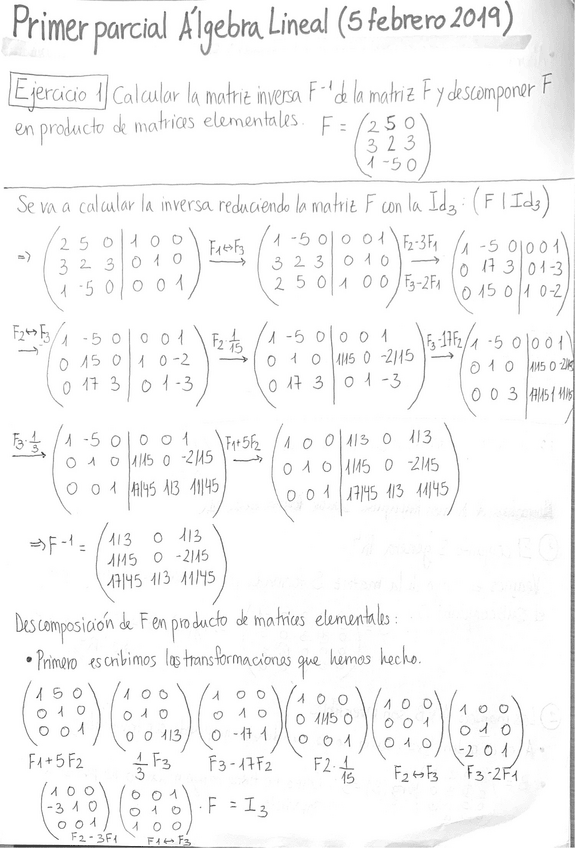 Primer parcial Álgebra Lineal (5 febrero 2019)
Ejercicio 1 Calcular la matriz inversa F⁻¹ de la matriz F y descomponer F
en producto de matrices elementales. F =
2 5 0
3 2 3
1 -5 0
Se va a calcular la inversa reduciendo la matriz F con la Id₃: (F | Id₃)
⇒ F1↔F3 F2-3F1
F3-2F1
2 5 0 | 1 0 0
3 2 3 | 0 1 0
1 -5 0 | 0 0 1
1 -5 0 | 0 0 1
3 2 3 | 0 1 0
2 5 0 | 1 0 0
1 -5 0 | 0 0 1
0 17 3 | 0 1 -3
0 15 0 | 1 0 -2
F2↔F3 F2·1/15 F3-17F2
1 -5 0 | 0 0 1
0 15 0 | 1 0 -2
0 17 3 | 0 1 -3
1 -5 0 | 0 0 1
0 1 0 | 1/15 0 -2/15
0 17 3 | 0 1 -3
1 -5 0 | 0 0 1
0 1 0 | 1/15 0 -2/15
0 0 3 | 17/15 1 11/15
F3·1/3 F1+5F2
1 -5 0 | 0 0 1
0 1 0 | 1/15 0 -2/15
0 0 1 | 17/45 1/3 11/45
1 0 0 | 1/3 0 1/3
0 1 0 | 1/15 0 -2/15
0 0 1 | 17/45 1/3 11/45
⇒ F⁻¹ =
1/3 0 1/3
1/15 0 -2/15
17/45 1/3 11/45
Descomposición de F en producto de matrices elementales:
• Primero escribimos las transformaciones que hemos hecho.
1 5 0
0 1 0
0 0 1
F1+5F2
1 0 0
0 1 0
0 0 1/3
1/3 F3
1 0 0
0 1 0
0 -17 1
F3-17F2
1 0 0
0 1/15 0
0 0 1
F2·1/15
1 0 0
0 0 1
0 1 0
F2↔F3
1 0 0
0 1 0
-2 0 1
F3-2F1
1 0 0
-3 1 0
0 0 1
F2-3F1
0 0 1
0 1 0
1 0 0
F1↔F3
· F = I₃